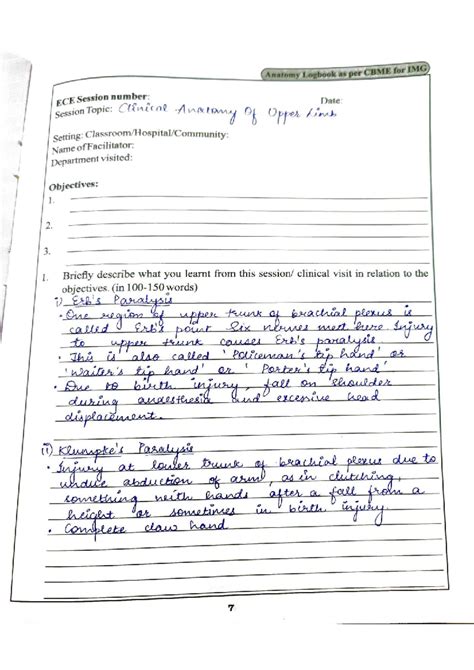 Anatomy Logbook as per CBME for IMG
ECE Session number:
Date:
Session Topic: Clinical Anatomy Of Upper Limb
Setting: Classroom/Hospital/Community:
Name of Facilitator:
Department visited:
Objectives:
1.
2.
3.
1. Briefly describe what you learnt from this session/ clinical visit in relation to the
objectives. (in 100-150 words)
i) Erb's Paralysis
• One region of upper trunk of brachial plexus is
called Erb's point. Six nerves meet here. Injury
to upper trunk causes Erb's paralysis.
• This is also called 'Policeman's tip hand' or
'Waiter's tip hand' or 'Porter's tip hand'
• Due to birth injury, fall on shoulder
during anaesthesia and excessive head
displacement.
ii) Klumpke's Paralysis
• Injury at lower trunk of brachial plexus due to
undue abduction of arm, as in clutching
something with hands after a fall from a
height or sometimes in birth injury.
• Complete claw hand
7